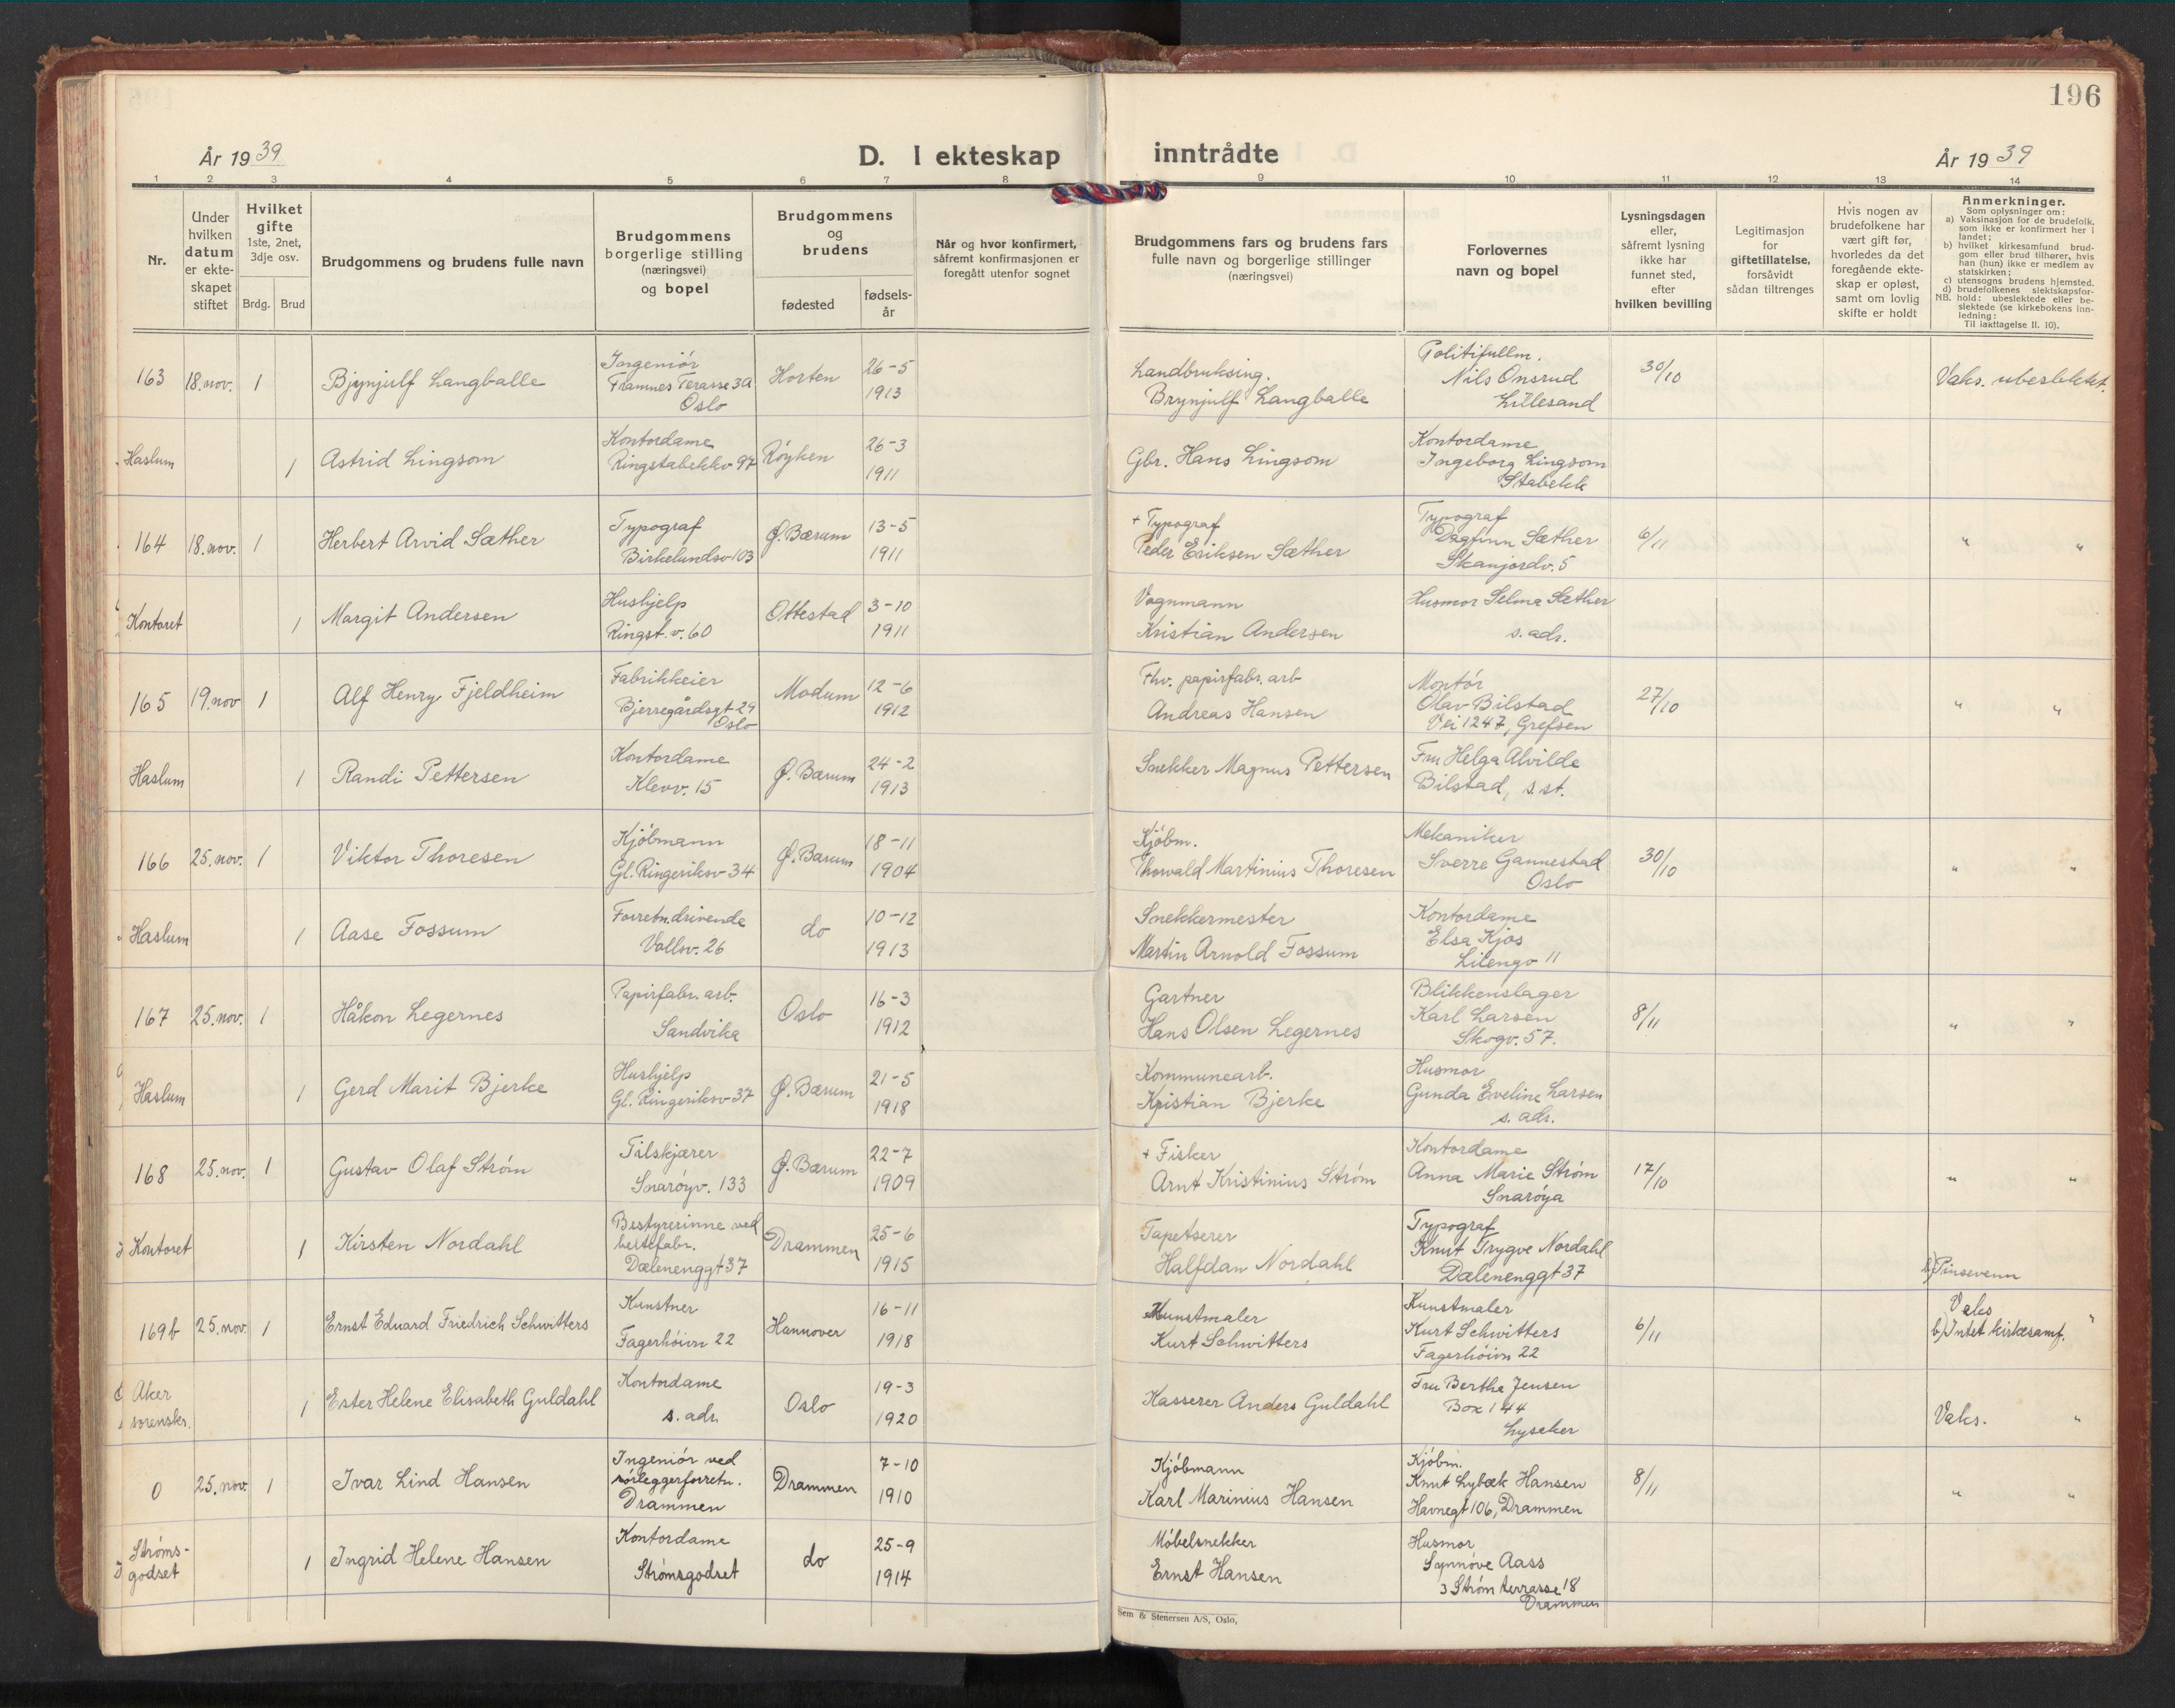 196
År 1939
D. I ekteskap
inntrådte
År 1939
1 2 3 4 5 6 7 8 9 10 11 12 13 14
Nr.
Under
hvilken
datum
er ekte-
skapet
stiftet
Hvilket
gifte
1ste, 2net,
3dje osv.
Brdg. Brud
Brudgommens og brudens fulle navn
Brudgommens
borgerlige stilling
(næringsvei)
og bopel
Brudgommens
og
brudens
fødested
fødsels-
år
Når og hvor konfirmert,
såfremt konfirmasjonen er
foregått utenfor sognet
Brudgommens fars og brudens fars
fulle navn og borgerlige stillinger
(næringsvei)
Forlovernes
navn og bopel
Lysningsdagen
eller,
såfremt lysning
ikke har
funnet sted,
efter
hvilken bevilling
Legitimasjon
for
giftetillatelse,
forsåvidt
sådan tiltrenges
Hvis nogen av
brudefolkene har
vært gift før,
hvorledes da det
foregående ekte-
skap er opløst,
samt om lovlig
skifte er holdt
Anmerkninger.
Som oplysninger om:
a) Vaksinasjon for de brudefolk,
som ikke er konfirmert her i
landet;
b) hvilket kirkesamfund brud-
gom eller brud tilhører, hvis
han (hun) ikke er medlem av
statskirken;
c) utensogns brudens hjemsted.
d) brudefolkenes slektskapsfor-
NB. hold: ubeslektede eller be-
slektede (se kirkebokens inn-
ledning:
Til iakttagelse II. 10).
163 18. nov. 1 Bjynjulf Langballe
Ingeniör
Framnes Terasse 3a
Oslo
Horten
26-5
1913
Landbruksing.
Brynjulf Langballe
Politifullm.
Nils Onsrud
Lillesand
30/10
Vaks. ubeslektet.
Haslum 1 Astrid Lingsom
Kontordame
Ringstabekkv. 97
Röyken
26-3
1911
Gbr. Hans Lingsom
Kontordame
Ingeborg Lingsom
Stabekk
164 18. nov. 1 Herbert Arvid Sæther
Typograf
Birkelundsv 103
Ø. Bærum
13-5
1911
+ Typograf
Peder Eriksen Sæther
Typograf
Dagfinn Sæther
Skanjordv. 5
6/11
" "
Kontoret 1 Margit Andersen
Hushjelp
Ringst. v. 60
Ottestad
3-10
1911
Vognmann
Kristian Andersen
Husmor Selma Sæther
s. adr.
165 19. nov 1 Alf Henry Fjeldheim
Fabrikkeier
Bjerregårdsgt 29
Oslo
Modum
12-6
1912
Fhv. papirfabr. arb
Andreas Hansen
Montör
Olav Bilstad
Vei 1247, Grefsen
27/10
" "
Haslum 1 Randi Pettersen
Kontordame
Klevv. 15
Ø. Bærum
24-2
1913
Snekker Magnus Pettersen
Fru Helga Alvilde
Bilstad, s. st.
166 25. nov. 1 Viktor Thoresen
Kjöbmann
Gl. Ringeriksv 34
Ø. Bærum
18-11
1904
Kjöbm.
Thorvald Martinius Thoresen
Mekaniker
Sverre Gannestad
Oslo
30/10
" "
Haslum 1 Aase Fossum
Forretn.drivende
Vollsv. 26
do
10-12
1913
Snekkermester
Martin Arnold Fossum
Kontordame
Elsa Kjos
Lilengv 11
167 25. nov. 1 Håkon Legernes
Papirfabr. arb.
Sandvika
Oslo
16-3
1912
Gartner
Hans Olsen Legernes
Blikkenslager
Karl Larsen
Skogv. 57.
8/11
" "
Haslum 1 Gerd Marit Bjerke
Hushjelp
Gl. Ringeriksv 37
Ø. Bærum
21-5
1918
Kommunearb.
Kristian Bjerke
Husmor
Gunda Eveline Larsen
s. adr.
168 25. nov. 1 Gustav Olaf Ström
Tilskjærer
Snaröyv. 133
Ø. Bærum
22-7
1909
+ Fisker
Arnt Kristinius Ström
Kontordame
Anna Marie Ström
Snaröya
17/10
" "
Kontoret 1 Kirsten Nordahl
Bestyrerinne ved
beltefabr.
Dælenenggt 37
Drammen
25-6
1915
Tapetserer
Halfdan Nordahl
Typograf
Knut Trygve Nordahl
Dælenenggt 37
b) Pinsevenn
169b 25. nov. 1 Ernst Eduard Friedrich Schwitters
Kunstner
Fagerhöivn 22
Hannover
16-11
1918
Kunstmaler
Kurt Schwitters
Kunstmaler
Kurt Schwitters
Fagerhöivn 22
6/11
Vaks "
b) Intet kirkesamf.
Aker
sorenskr. 1 Ester Helene Elisabeth Guldahl
Kontordame
s. adr.
Oslo
19-3
1920
Kasserer Anders Guldahl
Fru Berthe Jensen
Box 144
Lysaker
Vaks. "
0 25. nov. 1 Ivar Lind Hansen
Ingeniör ved
rörleggerforretn.
Drammen
Drammen
7-10
1910
Kjöbmann
Karl Marinius Hansen
Kjöbm.
Knut Lybæk Hansen
Havnegt 106, Drammen
8/11
" "
Ströms-
godset 1 Ingrid Helene Hansen
Kontordame
Strömsgodset
do
25-9
1914
Möbelsnekker
Ernst Hansen
Husmor
Synnöve Aass
3 Ström terrasse 18
Drammen
Sem & Stenersen A/S, Oslo,